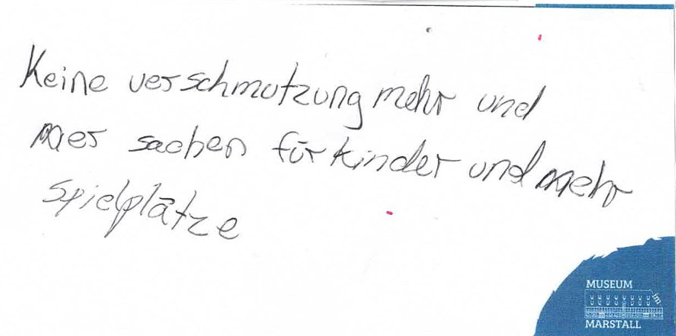 Keine verschmutzung mehr und
mer sachen für kinder und mehr
spielplätze
MUSEUM
MARSTALL